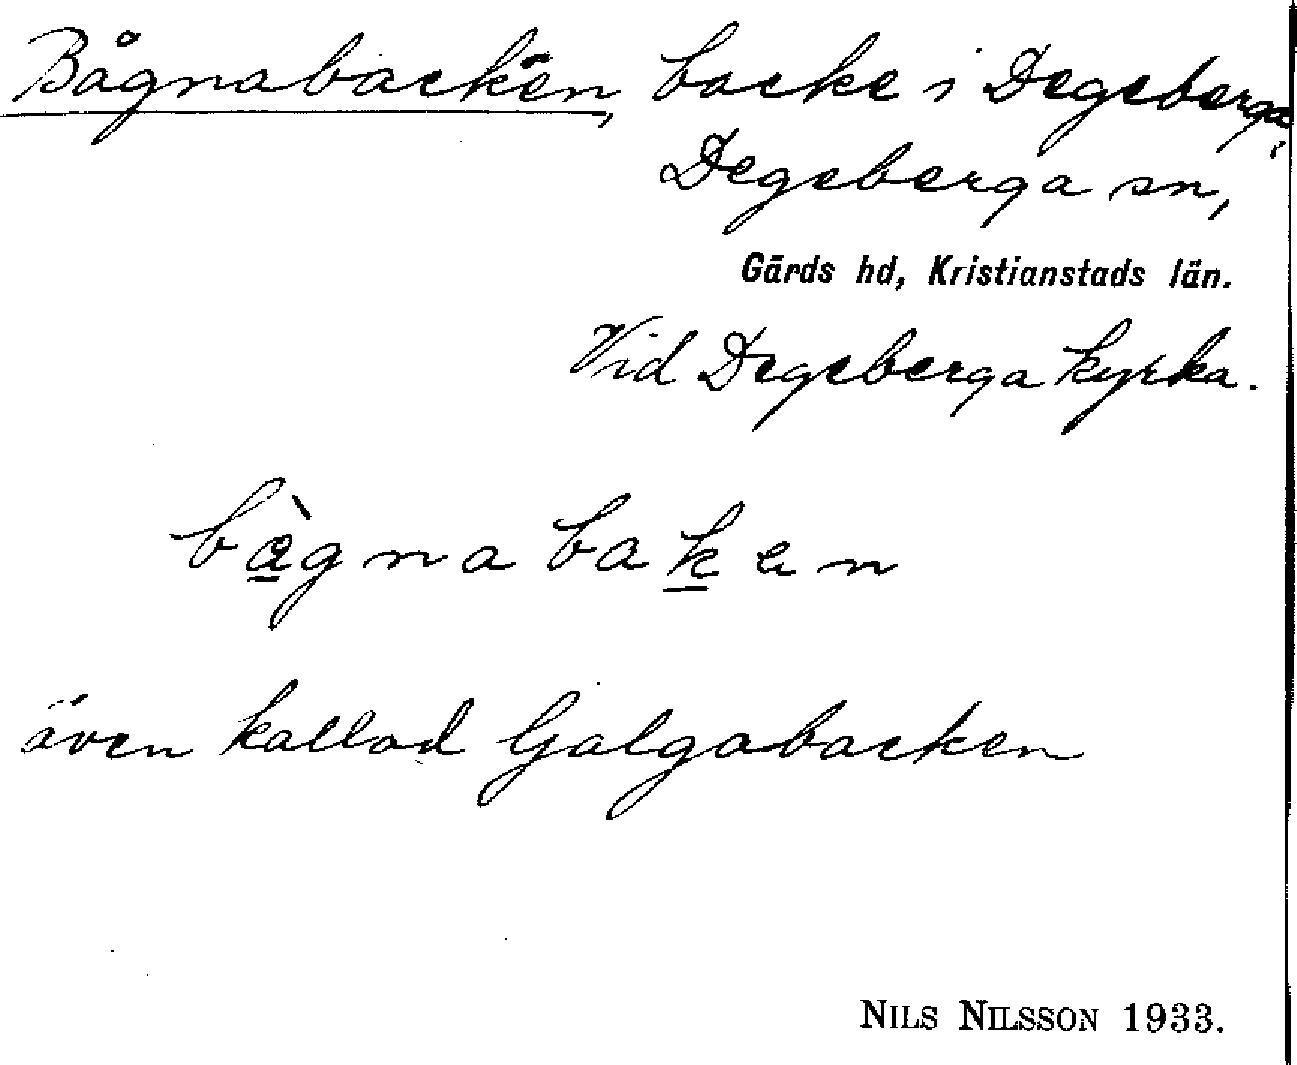 Bågnabacken, backe i Degeberga,
Degeberga sn,
Gärds hd, Kristianstads län.
Vid Degeberga kyrka.
även kallad Galgabacken
NILS NILSSON 1933.